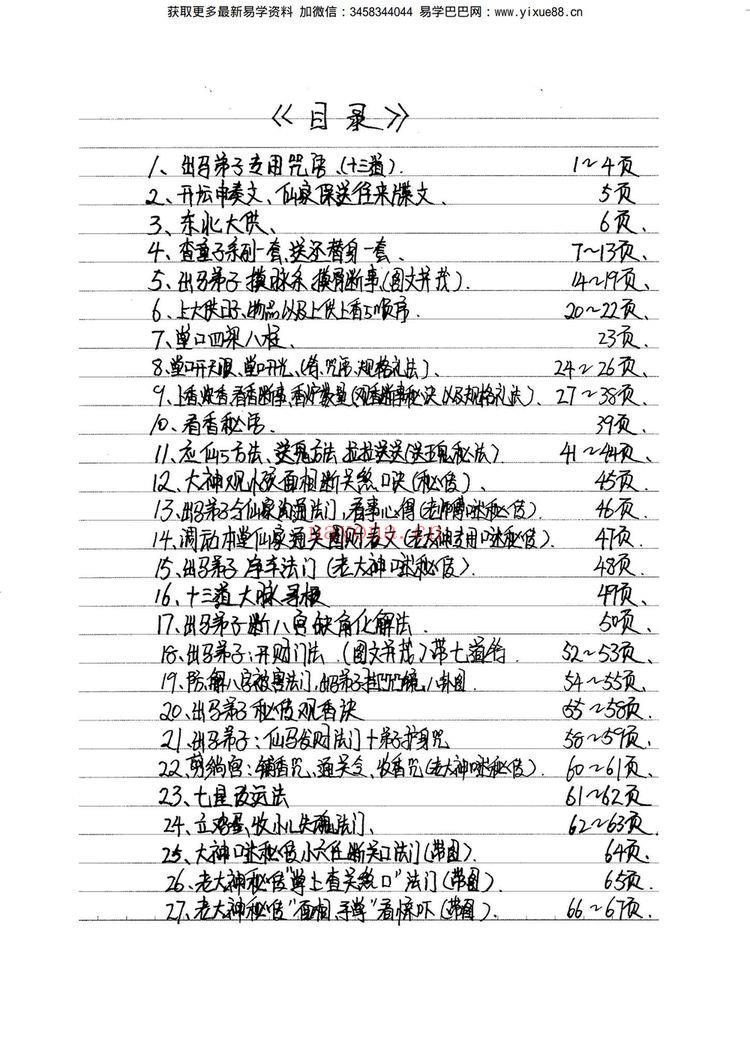 获取更多最新易学资料 加微信：3458344044 易学巴巴网：www.yixue88.cn
《目录》
1、出马弟子专用咒语、(十三道). 1~4页
2、开坛申奏文、仙家保送往来牒文、 5页
3、东北大供、 6页、
4、查童子系列一套、送还替身一套、 7~13页、
5、出马弟子摸脉条、摸骨断事(图文并茂). 14~19页、
6、上大供日子、物品以及上供上香の顺序. 20~22页、
7、堂口四梁八柱、 23页、
8、堂口开天眼、堂口开光、(条、咒语、规格礼法). 24~26页、
9、上香、发香、看香断事、香炉数量(观香断事秘诀以及规格礼法)、 27~38页、
10、看香秘语. 39页、
11、应仙の方法、送鬼方法、拉拉送送(送鬼秘法) 41~44页、
12、大神观小孩面相断关煞口诀(秘传)、 45页、
13、出马弟子合仙家沟通法门,看事心得(老师傅口述秘传). 46页、
14、调动本堂仙家通关圆财表文(老大神专用口述秘传). 47页、
15、出马弟子净车法门(老大神口述秘传). 48页、
16、十三道大脉寻梗 49页、
17、出马弟子断八宫缺角化解法. 50页、
18、出马弟子:开财门法.(图文并茂)带七道符. 52~53页、
19、防解八字被害法门,出马弟子挂咒镜,八卦图. 54~55页、
20、出马弟子秘传观香诀 55~58页.
21、出马弟子:仙马发财法门+弟子护身咒 58~59页、
22、剪绡宫:铺香咒、通关令、收香咒(老大神口述秘传). 60~61页、
23、七星改运法 61~62页
24、立鸡蛋、收小儿失魂法门、 62~63页、
25、大神口述秘传小六任断关口法门(带图). 64页、
26、老大神秘传"掌上查关煞口"法门(带图). 65页、
27、老大神秘传"面相、手掌"看惊吓(带图). 66~67页、